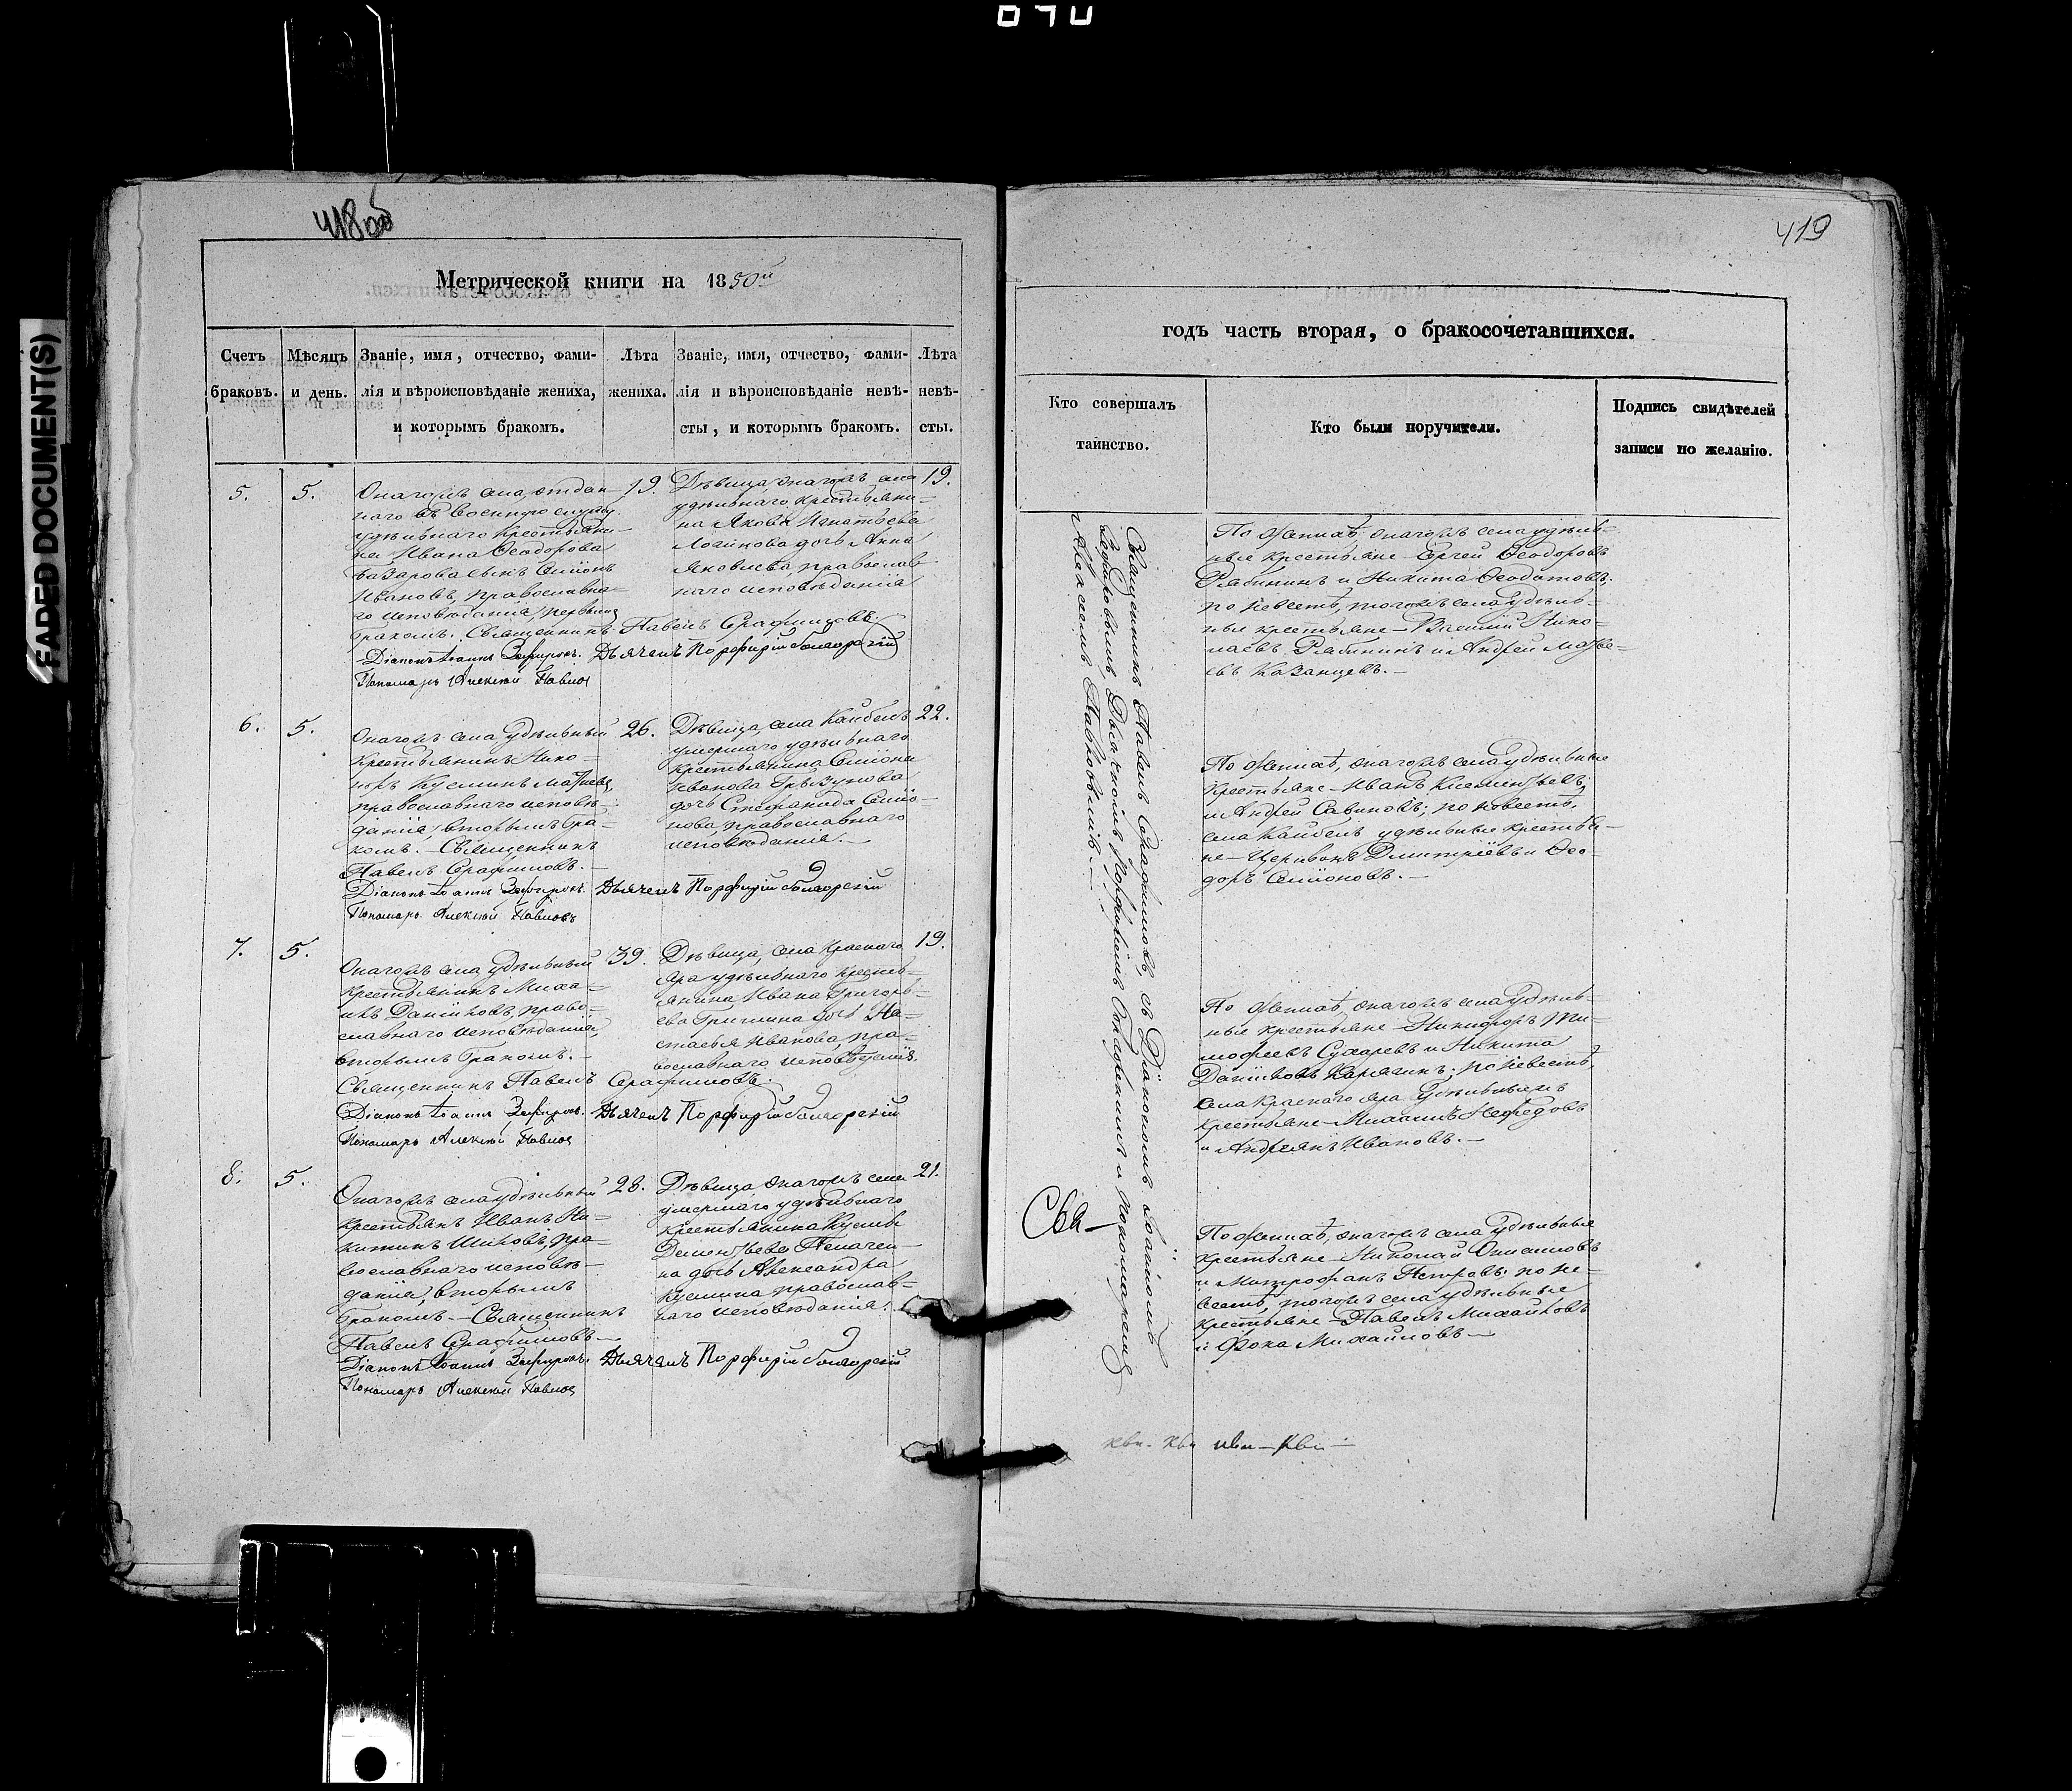 070
FADED DOCUMENT(S)
418об
Метрической книги на 1850й
Счетъ браковъ.
Мѣсяцъ и день.
Званіе, имя, отчество, фами-
лія и вѣроисповѣданіе жениха,
и которымъ бракомъ.
Лѣта жениха.
Званіе, имя, отчество, фами-
лія и вѣроисповѣданіе невѣ-
сты, и которымъ бракомъ.
Лѣта невѣ-
сты.
5.
5.
Онагожъ села, отдан-
наго въ военную службу
удѣльнаго крестьяни-
на Ивана Ѳеодорова
сынъ Симіонъ
Ивановъ, православна-
го исповѣданія, первымъ
бракомъ. Священникъ Павелъ Серафимовъ.
Діаконъ Іоаннъ Зефировъ. Дьячекъ Порфирій
Пономарь Алексѣй Павлов
19.
Дѣвица, онагожъ села
удѣльнаго крестьяни-
на Якова Игнатьева
Логинова дочь Анна
Яковлева, православ-
наго исповѣданія
19.
6.
5.
Онагожъ села удѣльный
крестьянинъ Нико-
норъ Кусминъ
православнаго исповѣ-
данія, вторымъ бра-
комъ. Священникъ
Павелъ Серафимовъ.
Діаконъ Іоаннъ Зефировъ. Дьячекъ Порфирій
Пономарь Алексѣй Павловъ
26.
Дѣвица, села Кайбелъ
умершаго удѣльнаго
крестьянина Симіона
Иванова
дочь Стефанида Симіо-
нова, православнаго
исповѣданія.
22.
7.
5.
Онагожъ села удѣльный
крестьянинъ Миха-
илъ Даниловъ, право-
славнаго исповѣданія,
вторымъ бракомъ.
Священникъ Павелъ Серафимовъ.
Діаконъ Іоаннъ Зефировъ. Дьячекъ Порфирій
Пономарь Алексѣй Павлов
39.
Дѣвица, села Краснаго
Яра удѣльнаго кресть-
янина Ивана Григорь-
ева Гришина дочь На-
стасья Иванова, пра-
вославнаго исповѣданія.
19.
8.
5.
Онагожъ села удѣльный
крестьянъ Иванъ Ни-
китинъ Шиховъ, пра-
вославнаго исповѣ-
данія, вторымъ
бракомъ. — Священникъ
Павелъ Серафимовъ.
Діаконъ Іоаннъ Зефировъ. Дьячекъ Порфирій
Пономарь Алексѣй Павлов
28.
Дѣвица онагожъ села
умершаго удѣльнаго
крестьянина Кусмы
Дементьева
на дочь Александра
Кусмина православ-
наго исповѣданія.
21.
419
годъ часть вторая, о бракосочетавшихся.
Кто совершалъ
таинство.
Кто были поручители.
Подпись свидѣтелей
записи по желанію.
Священникъ Павелъ Серафимовъ, съ Діакономъ Іоанномъ
Зефировымъ, Дьячкомъ Порфиріемъ и Пономаремъ
Алексѣемъ Павловымъ.
Свя—
По женихѣ, онагожъ села удѣль-
ные крестьяне — Сергѣй Ѳеодоровъ
Рябининъ и Никита Ѳеодотовъ;
по невестѣ, тогожъ села удѣль-
ные крестьяне — Василій Нико-
лаевъ Рябининъ и Андрей Матве-
евъ Казанцевъ. —
По женихѣ, онагожъ села удѣльные
крестьяне — Иванъ Клементьевъ
и Андрей Савиновъ; по невестѣ,
села Кайбелъ удѣльные крестья-
не — Димитріевъ и Ѳео-
доръ Симіоновъ. —
По женихѣ, онагожъ села удѣль-
ные крестьяне — Никифоръ Ти-
мофеевъ Сухаревъ и Никита
Даниловъ Карягинъ; по невестѣ,
села Краснаго Яра удѣльные
крестьяне — Михаилъ Нефедовъ
и Андреянъ Ивановъ. —
По женихѣ, онагожъ села удѣльные
крестьяне — Николай Онисимовъ
и Митрофанъ Петровъ; по не-
вестѣ, тогожъ села удѣльные
крестьяне — Павелъ Михайловъ
и Фока Михайловъ —